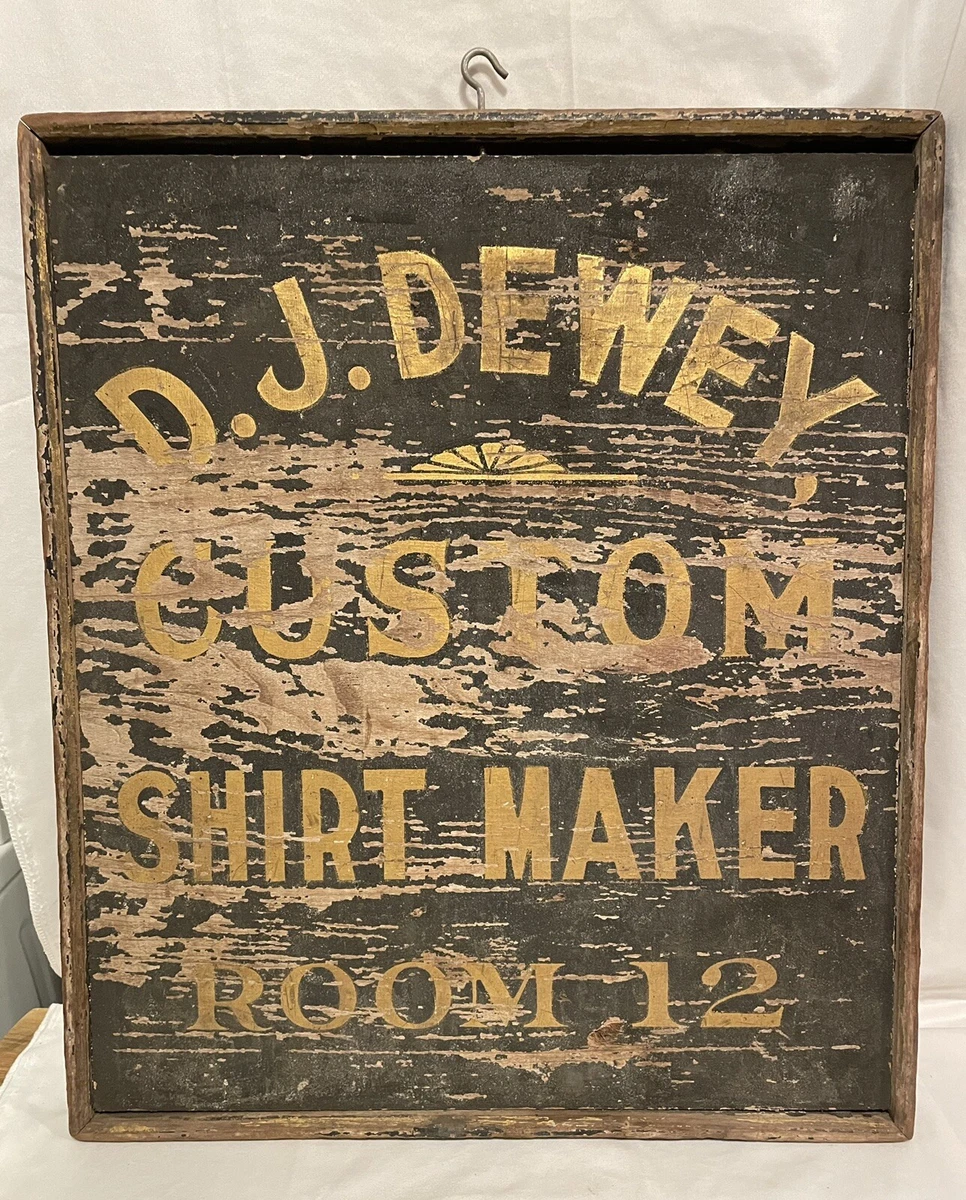 D. J. DEWEY,
CUSTOM
SHIRT MAKER
ROOM 12